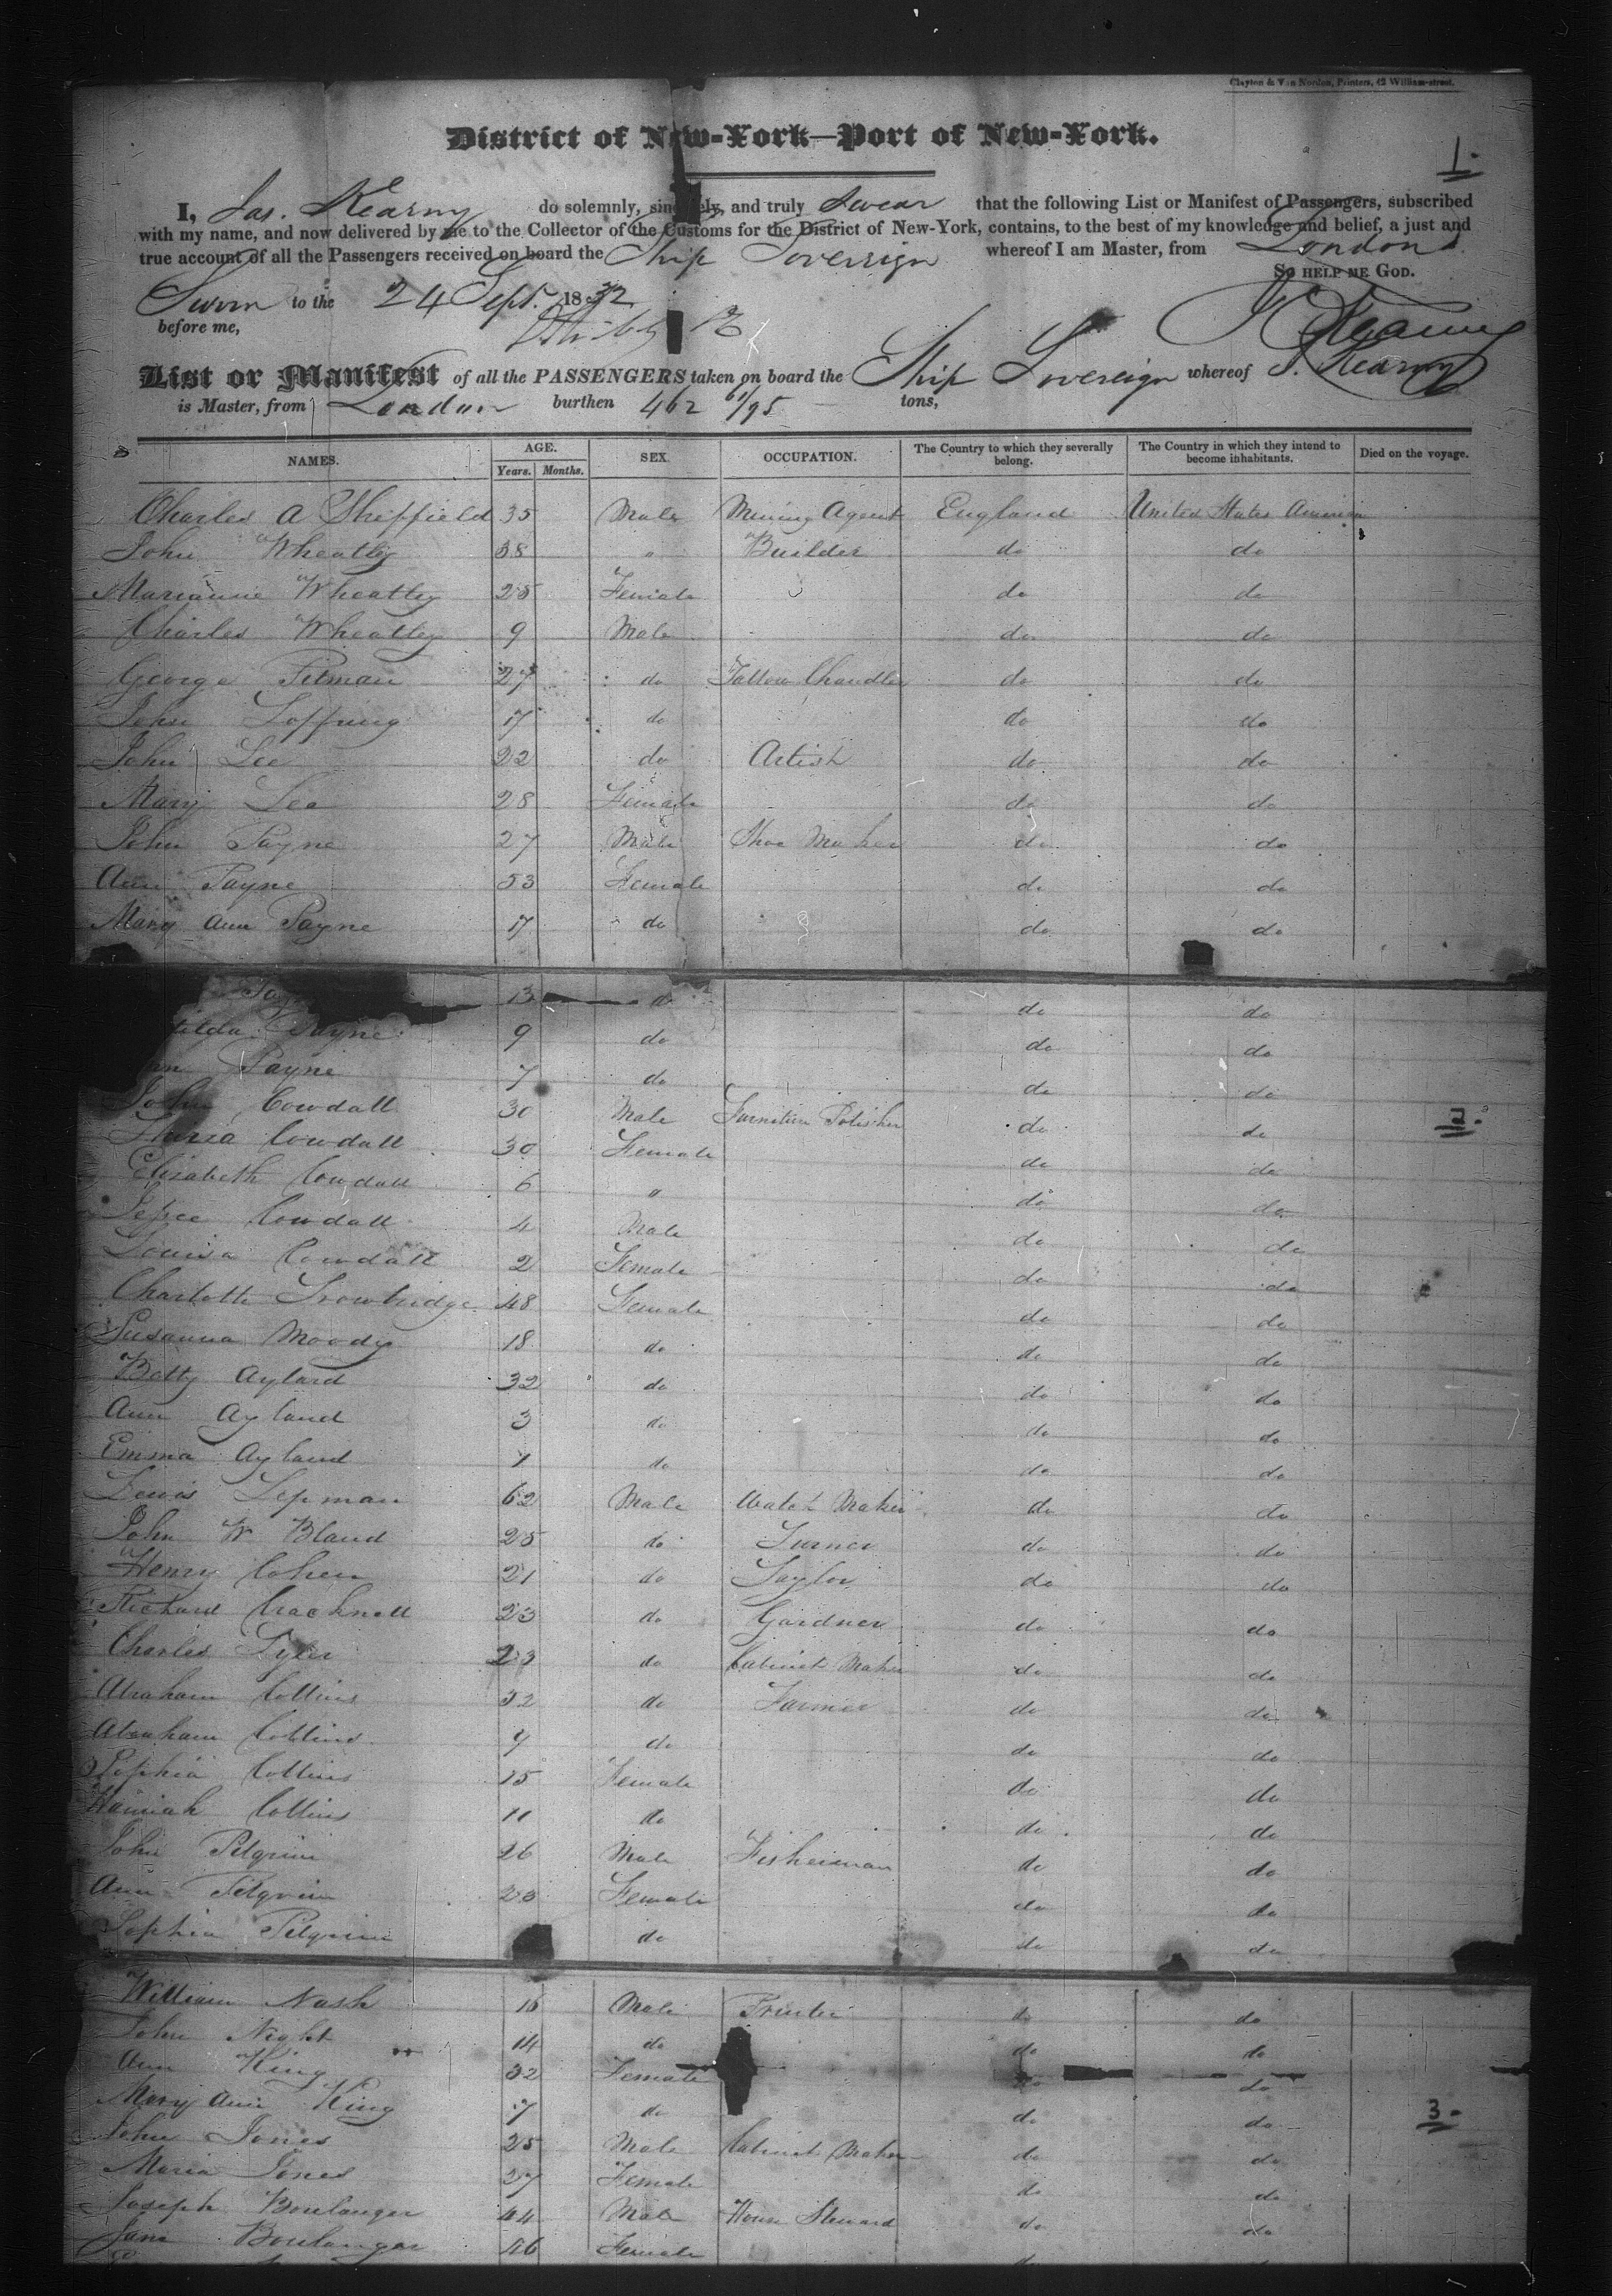 Clayton & Van Norden, Printers, 42 William-street.
District of New-York—Port of New-York.
1.
I, Jas. Kearny do solemnly, sincerely, and truly swear that the following List or Manifest of Passengers, subscribed
with my name, and now delivered by me to the Collector of the Customs for the District of New-York, contains, to the best of my knowledge and belief, a just and
true account of all the Passengers received on board the Ship Sovereign whereof I am Master, from London
So help me God.
Sworn to the 24 Sept. 1832
before me,
J Kearny
List or Manifest of all the PASSENGERS taken on board the Ship Sovereign whereof J. Kearny
is Master, from London burthen 462 61/95 tons,
NAMES. AGE. Years. Months. SEX. OCCUPATION. The Country to which they severally belong. The Country in which they intend to become inhabitants. Died on the voyage.
Charles A Sheffield 35 Male Mining Agent England United States America
John Wheatley 38 " Builder do do
Marianne Wheatley 25 Female do do
Charles Wheatley 9 Male do do
George Pitman 27 do Tallow Chandler do do
John 17 do do do
John Lee 22 do Artist do do
Mary Lee 28 Female do do
John Payne 27 Male Shoe Maker do do
Ann Payne 53 Female do do
Mary Ann Payne 17 do do do
13 do do do
tilda Payne 9 do do do
Payne 7 do do do
2.
John Cowdall 30 Male Furniture Polisher do do
Cowdall 30 Female do do
Elizabeth Cowdall 6 " do do
Jesse Cowdall 4 Male do do
Louisa Cowdall 2 Female do do
Charlotte Trowbridge 48 Female do do
Susanna Moody 18 do do do
Betty Aylard 32 do do do
Ann Aylard 3 do do do
Emma Aylard 1 do do do
Lewis Lepman 62 Male Watch Maker do do
John W Bland 25 do Turner do do
Henry Cohen 21 do Taylor do do
Richard Cracknell 23 do Gardner do do
Charles Tyler 23 do Cabinet Maker do do
Abraham Collins 52 do Farmer do do
Abraham Collins 9 do do do
Sophia Collins 15 Female do do
Hannah Collins 11 do do do
John Pilgrim 26 Male Fisherman do do
Ann Pilgrim 23 Female do do
Sophia Pilgrim do do do
William Nash 16 Male Printer do do
John Night 14 do do do
Ann King 32 Female do do
3.
Mary Ann King 7 do do do
John Jones 25 Male Cabinet Maker do do
Maria Jones 27 Female do do
Joseph Boulanger 44 Male House Steward do do
Jane Boulanger 46 Female